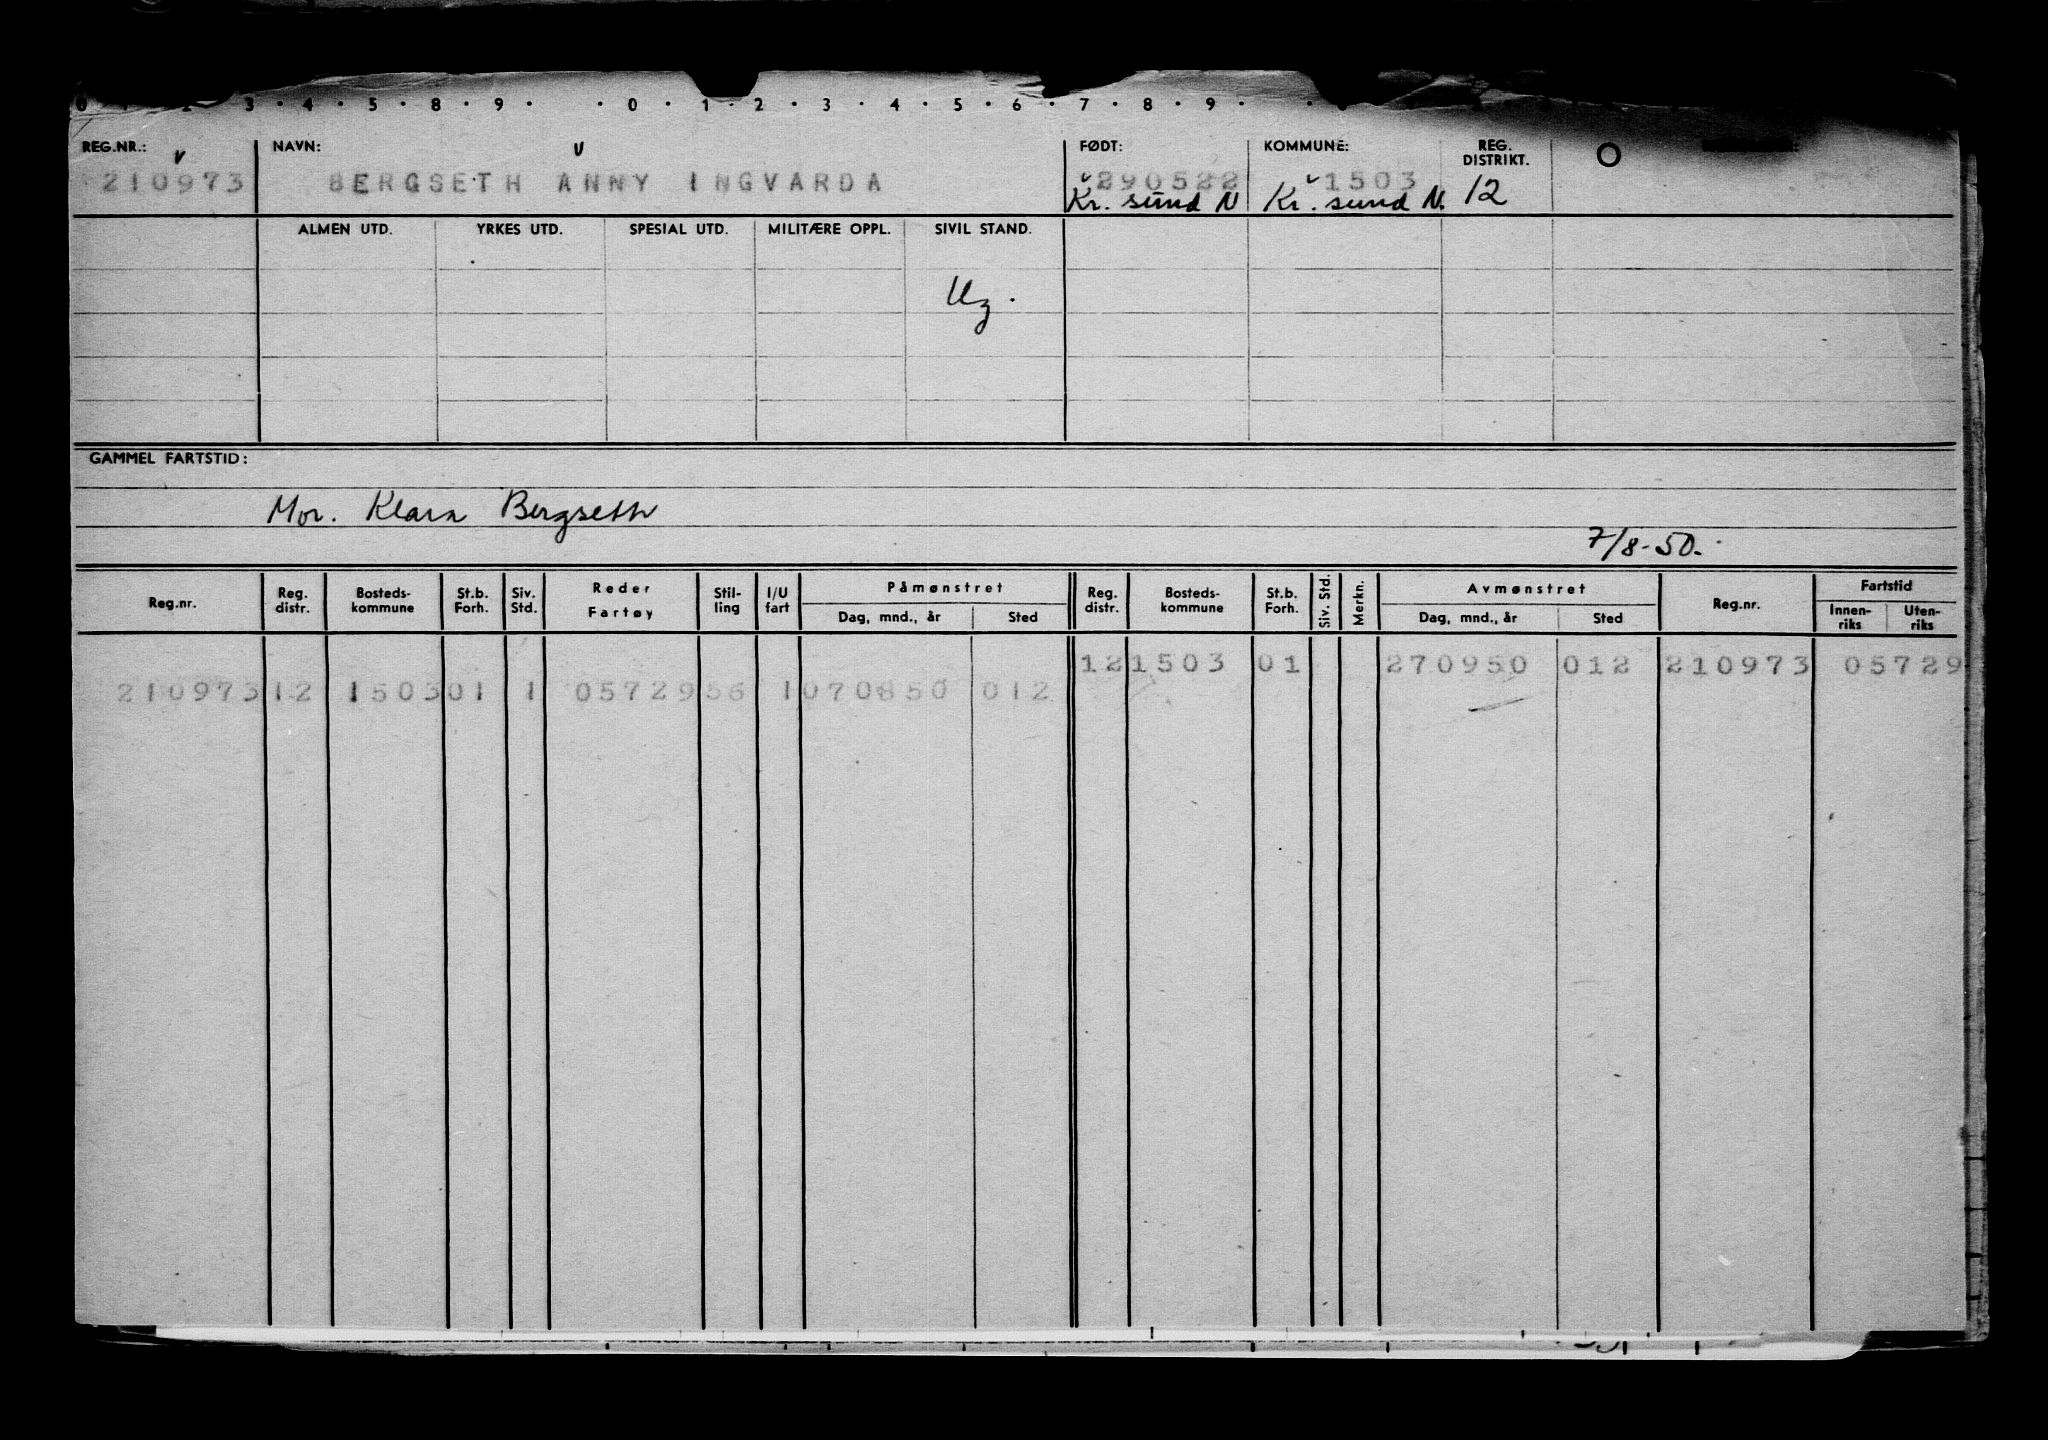 3 · 4 · 5 · 8 · 9 · · 0 · 1 · 2 · 3 · 4 · 5 · 6 · 7 · 8 · 9 ·
REG.NR.: NAVN: FØDT: KOMMUNE: REG. DISTRIKT.
210973 BERGSETH ANNY INGVARDA 290522 1503 12
Kr. sund N Kr. sund N.
ALMEN UTD. YRKES UTD. SPESIAL UTD. MILITÆRE OPPL. SIVIL STAND.
Ug.
GAMMEL FARTSTID:
Mor. Klara Bergseth
7/8-50.
Reg.nr. Reg. distr. Bosteds-kommune St.b. Forh. Siv. Std. Reder Fartøy Stil-ling I/U fart Påmønstret Dag, mnd., år Sted Reg. distr. Bosteds-kommune St.b. Forh. Siv. Std. Merkn. Avmønstret Dag, mnd., år Sted Reg.nr. Fartstid Innen-riks Uten-riks
12 1503 01 270950 012 210973 05729
210973 12 1503 01 1 05729 56 1 070850 012